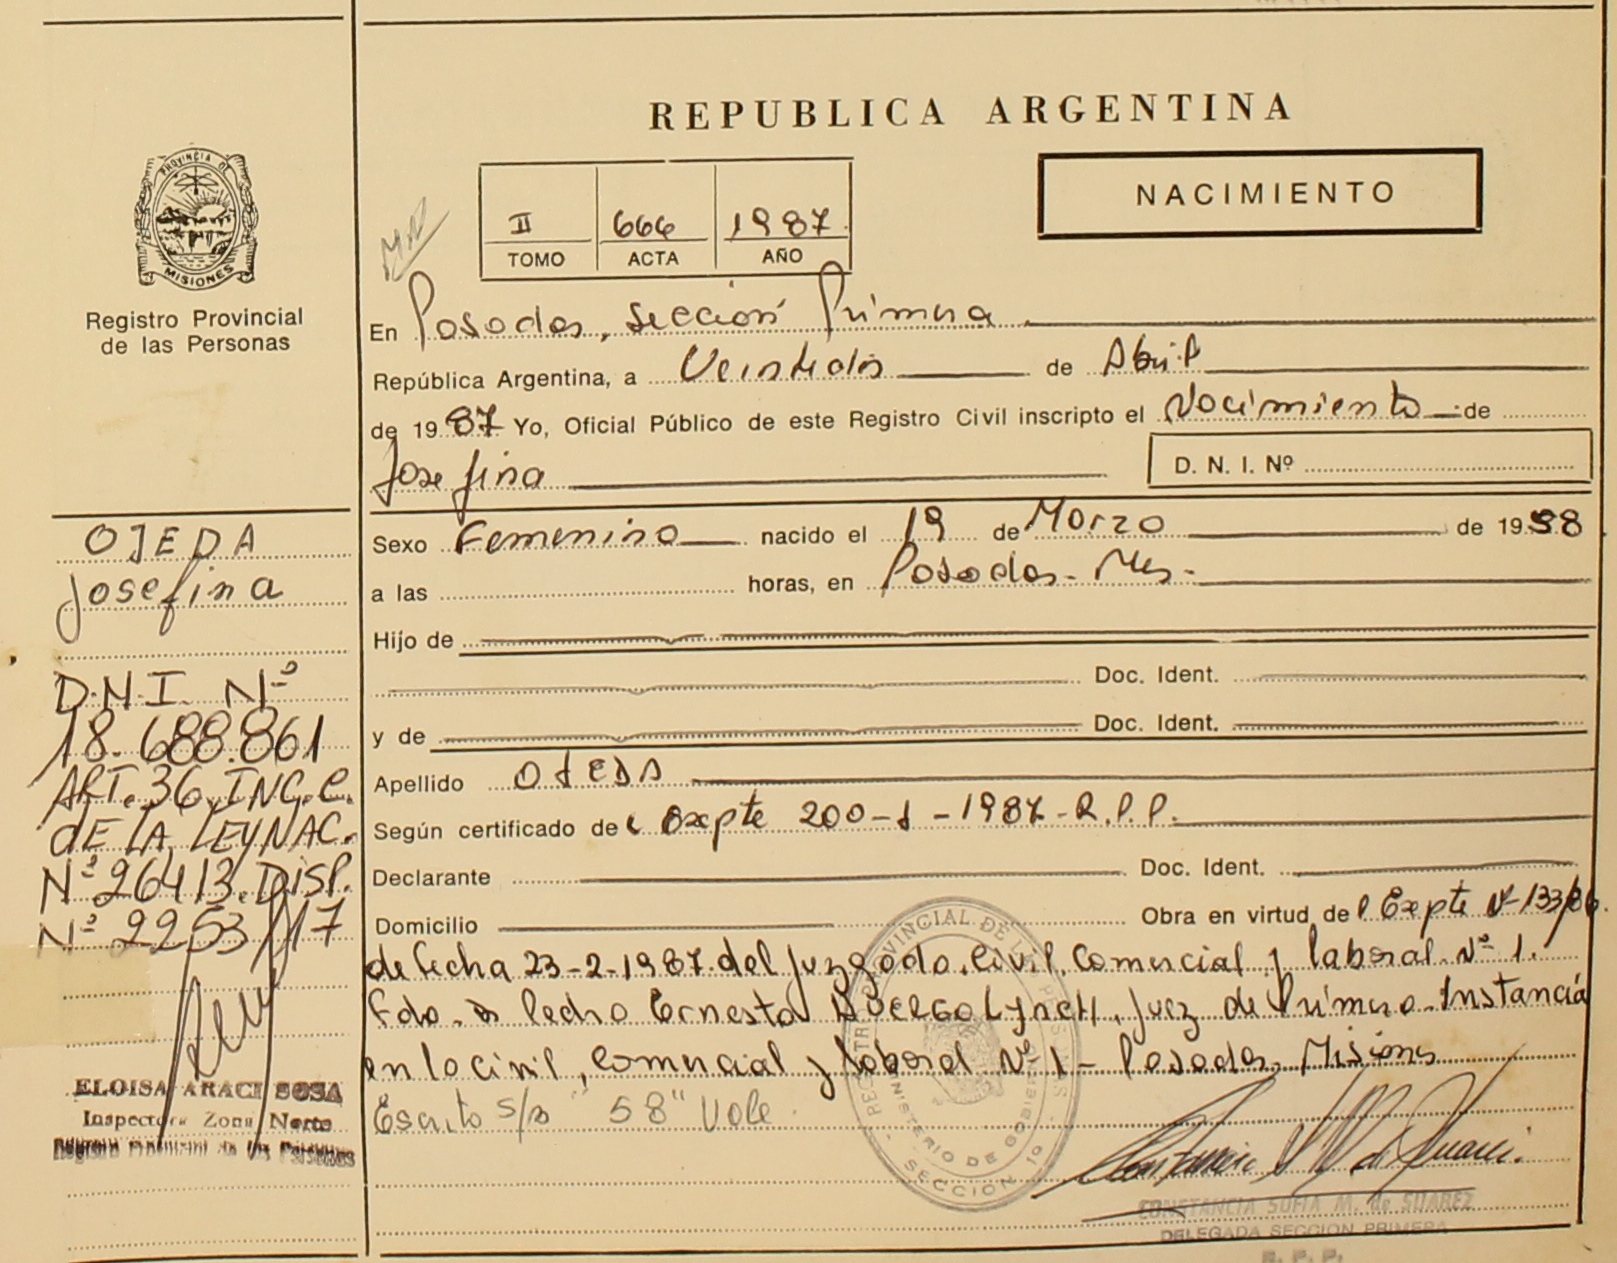 REPUBLICA ARGENTINA
PROVINCIA DE
MISIONES
Registro Provincial
de las Personas
II 666 1987
TOMO ACTA AÑO
NACIMIENTO
En Posadas, Sección Primera
República Argentina, a Veintidós de Abril
de 1987 Yo, Oficial Público de este Registro Civil inscripto el Nacimiento de
Josefina
D. N. I. Nº
Sexo Femenino nacido el 19 de Marzo de 1958
a las horas, en Posadas - Mns -
Hijo de
Doc. Ident.
y de Doc. Ident.
Apellido OJEDA
Según certificado de Expte 200-J-1987-R.P.P.
Declarante Doc. Ident.
Domicilio Obra en virtud de Expte Nº 133/86
de fecha 23-2-1987 del Juzgado Civil, Comercial y laboral Nº 1.
Fdo. Pedro Ernesto Duergo Lynch, Juez de Primera Instancia
en lo civil, Comercial y laboral Nº 1 - Posadas, Misiones
Escrito s/b "58" Vale.
OJEDA
Josefina
D.N.I. Nº
18.688.861
ART. 36. INC. C.
DE LA LEY NAC.
Nº 26413. DISP.
Nº 2253/17
ELOISA ARACI SOSA
Inspectora Zona Norte
Registro Provincial de las Personas
REGISTRO PROVINCIAL DE LAS PERSONAS
MINISTERIO DE GOBIERNO
SECCION 1º
CONSTANCIA SOFIA M. de SUAREZ
DELEGADA SECCION PRIMERA
R. P. P.